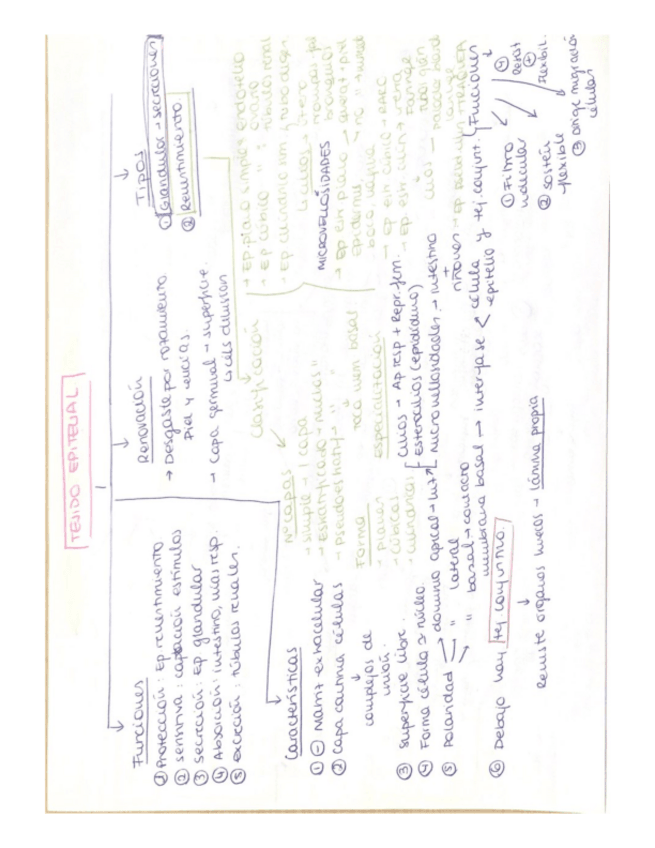 TEJIDO EPITELIAL
Funciones
① Protección: Ep revestimiento
② sensitiva: captación estímulos
③ secreción: Ep glandular
④ Absorción: intestino, vías resp.
⑤ excreción: túbulos renales.
Renovación
→ Desgaste por rozamiento
Piel y encías.
→ Capa germinal → superficie.
↳ cels división
Tipos
① Glandular → secreciones
② Revestimiento
Características
① ⊖ Matriz extracelular
② Capa continua células
complejos de
unión.
③ Superficie libre.
④ Forma célula ≈ núcleo.
⑤ Polaridad
dominio apical → luz
" lateral
" basal → contacto
membrana basal → interfase < célula y tej conjunt.
epitelio
Cilios → Ap resp + Repr. fem.
Estereocilios (epidídimo)
Microvellosidades → intestino
+
riñones
⑥ Debajo hay tej conjuntivo
Reviste órganos huecos → Lámina propia
Funciones
① Filtro
molecular
② sostén
flexible
③ dirige migración
células
④ Resist
⊕
flexibil.
Clasificación
Nº capas
→ simple → 1 capa
→ Estratificado → varias "
→ Pseudoestratif → "
toca mem basal.
Forma
→ planas
→ cúbicas
→ cilíndricas
especialización
→ Ep. plano simple → endotelio
→ Ep cúbico " :
ovario
túbulos renal
→ Ep cilíndrico sim
tubo diges
↳ cilios → útero
bronquiolos
MICROVELLOSIDADES
→ Ep est plano → querat → piel
epidermis
→ no "
boca, vagina
→ Ep est cúbico
→ Ep. est cilín → uretra
cilios